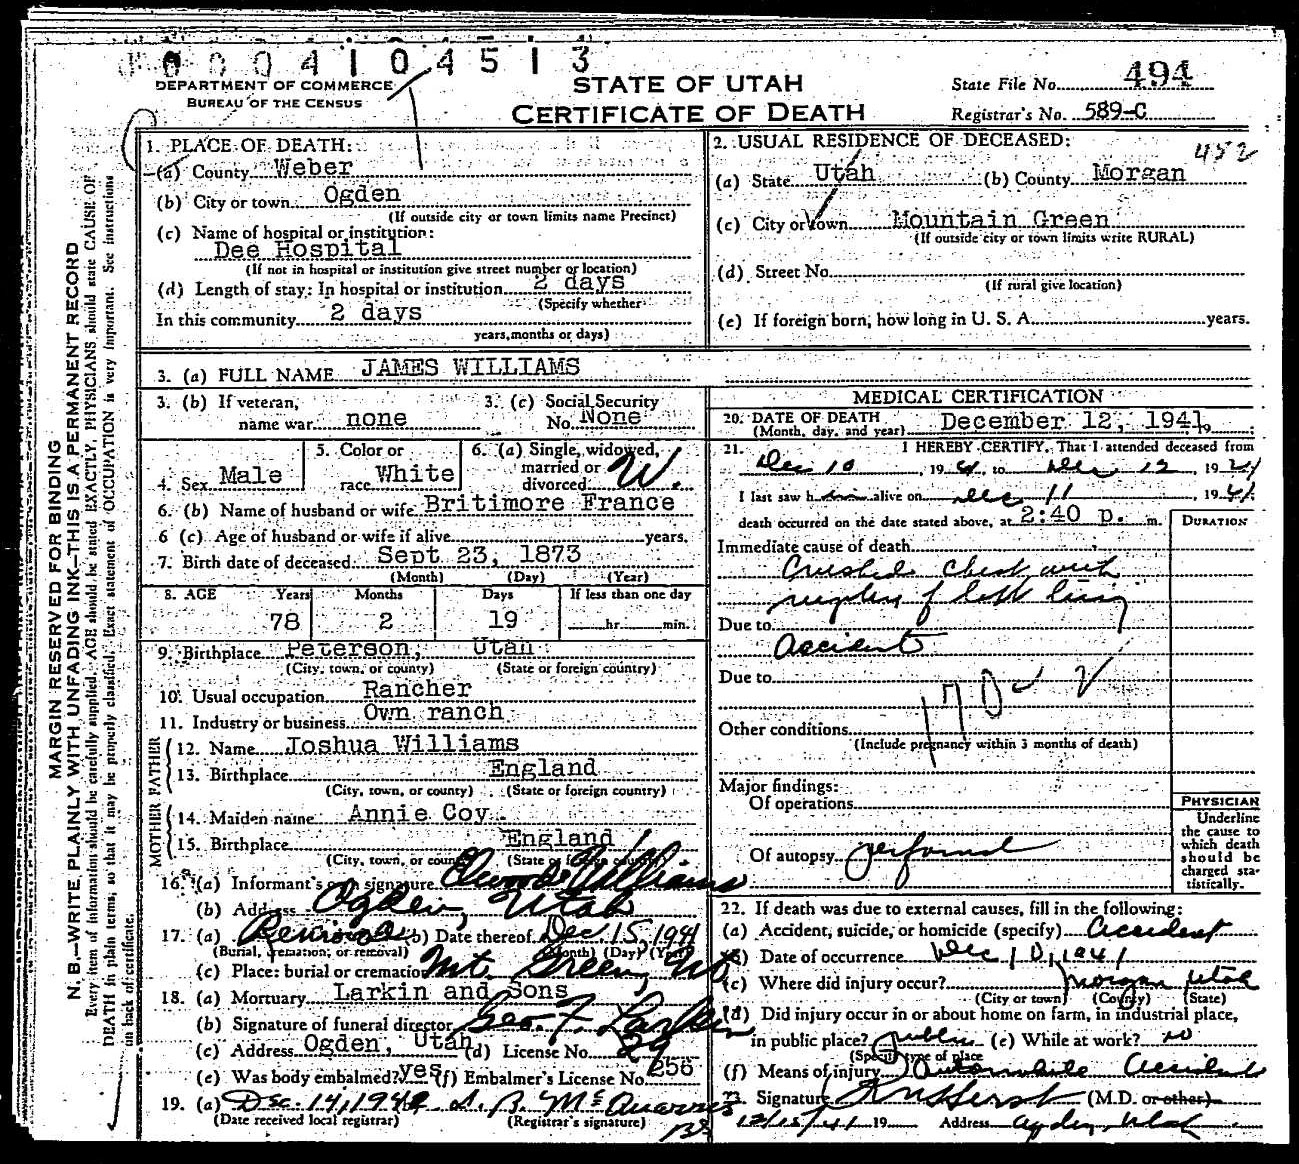 0004104513
DEPARTMENT OF COMMERCE
BUREAU OF THE CENSUS
STATE OF UTAH
CERTIFICATE OF DEATH
State File No. 494
Registrar's No. 589-C
MARGIN RESERVED FOR BINDING
N. B.—WRITE PLAINLY WITH UNFADING INK—THIS IS A PERMANENT RECORD
Every item of information should be carefully supplied. AGE should be stated EXACTLY. PHYSICIANS should state CAUSE OF
DEATH in plain terms, so that it may be properly classified. Exact statement of OCCUPATION is very important. See instructions
on back of certificate.
1. PLACE OF DEATH:
(a) County Weber
(b) City or town Ogden
(If outside city or town limits name Precinct)
(c) Name of hospital or institution:
Dee Hospital
(If not in hospital or institution give street number or location)
(d) Length of stay: In hospital or institution 2 days
(Specify whether
In this community 2 days
years, months or days)
2. USUAL RESIDENCE OF DECEASED:
452
(a) State Utah (b) County Morgan
(c) City or town Mountain Green
(If outside city or town limits write RURAL)
(d) Street No.
(If rural give location)
(e) If foreign born, how long in U. S. A. years.
3. (a) FULL NAME JAMES WILLIAMS
3. (b) If veteran,
name war none
3. (c) Social Security
No. None
4. Sex Male
5. Color or
race White
6. (a) Single, widowed,
married or
divorced W.
6. (b) Name of husband or wife Britimore France
6 (c) Age of husband or wife if alive years.
7. Birth date of deceased Sept 23, 1873
(Month) (Day) (Year)
8. AGE Years Months Days If less than one day
78 2 19 hr. min.
9. Birthplace Peterson, Utah
(City, town, or county) (State or foreign country)
10. Usual occupation Rancher
11. Industry or business Own ranch
FATHER
12. Name Joshua Williams
13. Birthplace England
(City, town, or county) (State or foreign country)
MOTHER
14. Maiden name Annie Coy
15. Birthplace England
(City, town, or county) (State or foreign country)
16. (a) Informant's own signature Elwood Williams
(b) Address Ogden, Utah
17. (a) Removal (b) Date thereof Dec 15, 1941
(Burial, cremation, or removal) (Month) (Day) (Year)
(c) Place: burial or cremation Mt. Green, Ut
18. (a) Mortuary Larkin and Sons
(b) Signature of funeral director Geo. F. Larkin
(c) Address Ogden, Utah (d) License No. 29
(e) Was body embalmed? yes (f) Embalmer's License No. 256
19. (a) Dec. 14, 1942
(Date received local registrar) (Registrar's signature)
MEDICAL CERTIFICATION
20. DATE OF DEATH December 12, 1941, 19
(Month, day, and year)
21. I HEREBY CERTIFY, That I attended deceased from
Dec 10, 1941, to Dec 12, 1941
I last saw him alive on Dec 11, 1941.
death occurred on the date stated above, at 2:40 p. m.
DURATION
Immediate cause of death
Crushed chest with
rupture of left lung
Due to
Accident
Due to
170 v
Other conditions
(Include pregnancy within 3 months of death)
Major findings:
Of operations
Of autopsy performed
PHYSICIAN
Underline
the cause to
which death
should be
charged sta-
tistically.
22. If death was due to external causes, fill in the following:
(a) Accident, suicide, or homicide (specify) Accident
(b) Date of occurrence Dec 10, 1941
(c) Where did injury occur? Morgan Utah
(City or town) (County) (State)
(d) Did injury occur in or about home on farm, in industrial place,
in public place? public (e) While at work? no
(Specify type of place
(f) Means of injury Automobile Accident
23. Signature (M.D. or other)
12/15/41 19 Address Ogden, Utah